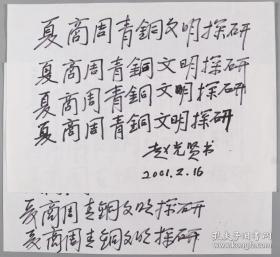 夏商周青銅文明探研
夏商周青銅文明探研
夏商周青銅文明探研
夏商周青銅文明探研
赵光贤书
2001.2.16
夏商周青銅文明探研
夏商周青銅文明探研
孔夫子旧书网